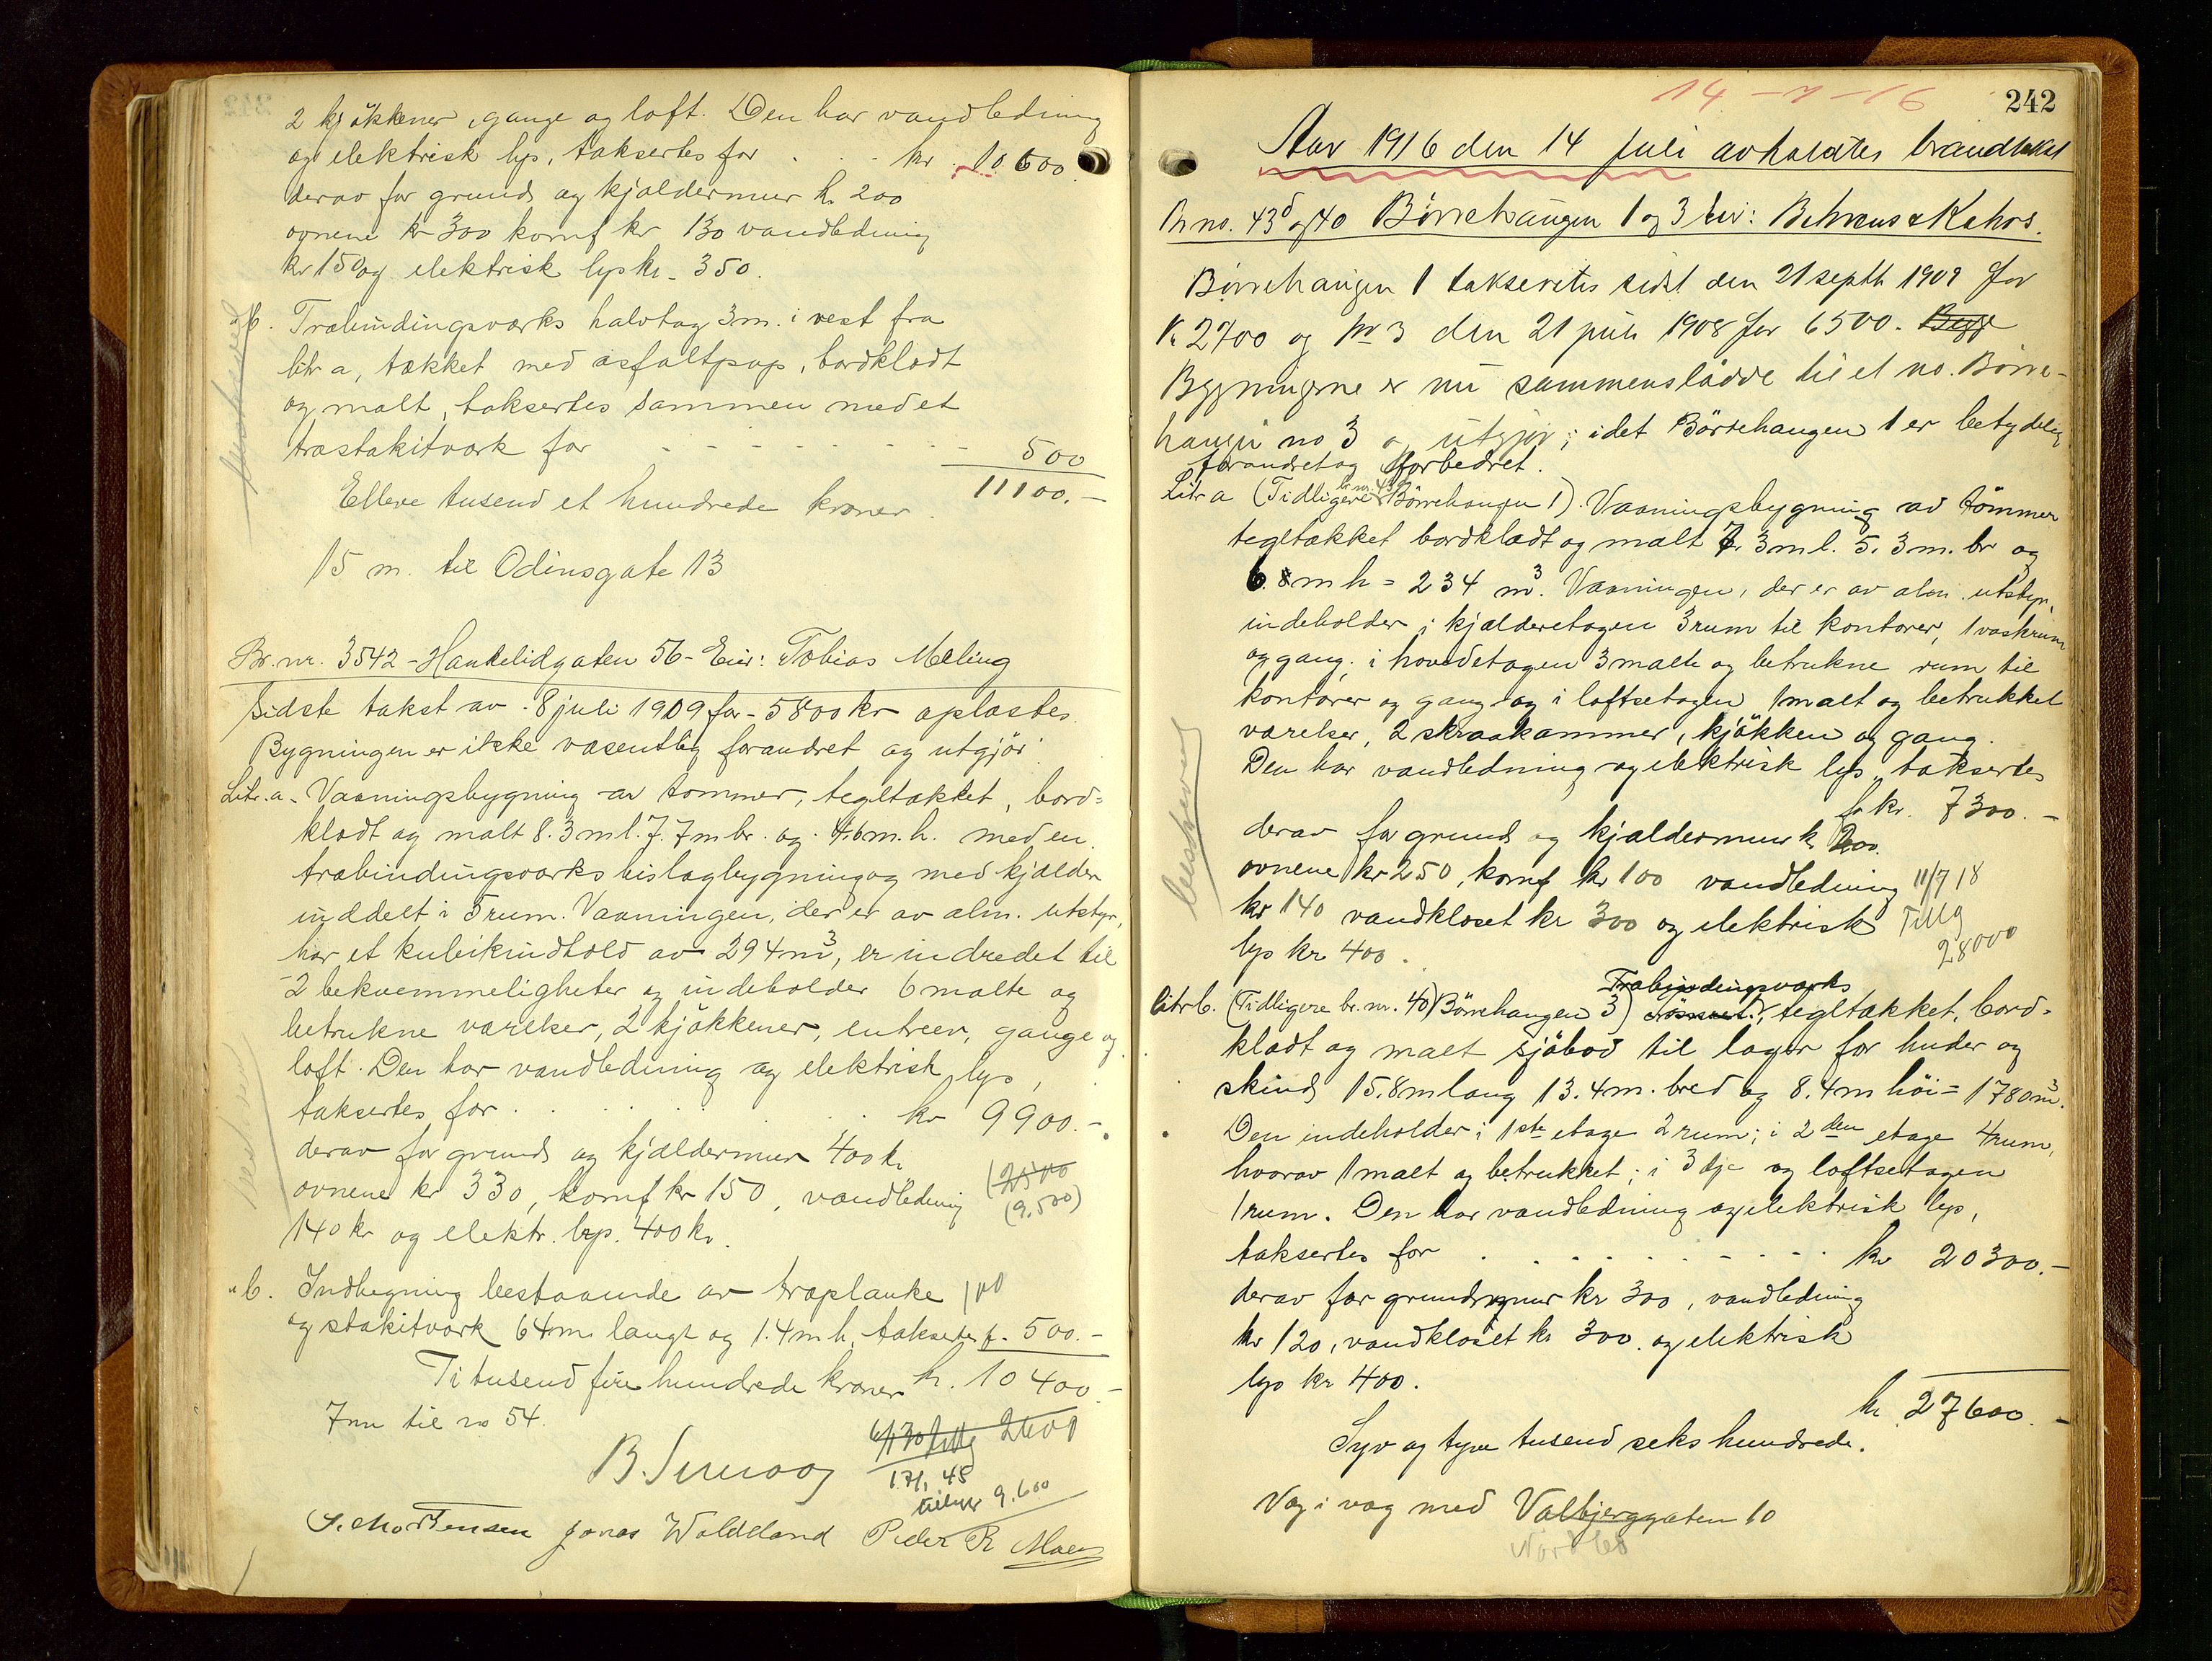 2 kjøkkener, gange og loft. Den har vandledning
og elektrisk lys, taksertes for . . . kr 10 600.
derav for grund og kjældermur kr 200
ovnene kr 300 komf kr 130 vandledning
kr 150 og elektrisk lys kr. 350.
" b. Træbindingsværks halvtag 3 m. i vest fra
litr a, tækket med asfaltpap, bordklædt
og malt, taksertes sammen med et
træstakitværk for - - - - - - - - 500
Elleve tusend et hundrede kroner 11100.-
15 m. til Odinsgate 13
Br. nr. 3542 - Haukelidgaten 56 - Eier: Tobias Meling
Sidste takst av 8 juli 1909 for - 5800 kr oplæstes.
Bygningen er ikke væsentlig forandret og utgjör:
Litr. a. Vaaningsbygning av tømmer, tegltækket, bord=
klædt og malt 8.3 m l. 7.7 m br. og 4.6 m. h. med en
træbindingsværks bislagbygning og med kjælder
inddelt i 5 rum. Vaaningen, der er av alm. utstyr,
har et kubikindhold av 294 m³, er indredet til
2 bekvemmeligheter og indeholder 6 malte og
betrukne værelser, 2 kjøkkener, entreer, gange og
loft. Den har vandledning og elektrisk lys,
taksertes for . . . . . . kr 9900.-
derav for grund og kjældermur 400 kr
ovnene kr 330, komf kr 150, vandledning
(2500
(9.500)
140 kr og elektr. lys. 400 kr.
" b. Indhegning bestaaende av træplanke 100
og stakitværk 64 m. langt og 1.4 m h, taksertes f. 500.-
Ti tusend fire hundrede kroner kr. 10 400.-
7 m til no 54.
2600
171, 48
9.600
S. Mortensen Jonas Waldeland Peder R
14 - 7 - 16
242
Aar 1916 den 14 juli avholdtes brandtakst
Br no. 43d og 40 Börrehaugen 1 og 3 Eier: Behrens & Kahrs.
Börrehaugen 1 takseretes sidst den 21 septb 1909 for
Kr 2700 og no 3 den 21 juli 1908 for 6500. Bygg
Bygningerne er nu sammenslådde til et no. Börre-
haugen no 3 og utgjør; idet Börrehaugen 1 er betydelig
forandret og forbedret.
Litr a (Tidligere br. nr. 43d Börrehaugen 1). Vaaningsbygning av tømmer
tegltækket bordklædt og malt 7. 3 m l. 5. 3 m. br og
6. m h = 234 m³. Vaaningen, der er av alm. utstyr,
indeholder i kjælderetagen 3 rum til kontorer, 1 vaskrum
og gang; i hovedetagen 3 malte og betrukne rum til
kontorer og gang og i loftsetagen 1 malt og betrukket
værelser, 2 skraakammer, kjøkken og gang.
Den har vandledning og elektrisk lys, taksertes
for kr. 7300.-
derav for grund og kjældermur kr 200.
ovnene kr 250, komf kr 100 vandledning
kr 140 vandkloset kr 300 og elektrisk
lys kr 400.
11/7 18
Tillg
28000
beskrevet
litr b. (Tidligere br. nr. 40) Börrehaugen 3) Træbindingsværks tegltækket, bord-
klædt og malt sjöbod til lager for huder og
skind, 15.8 m lang 13.4 m. bred og 8.4 m höi = 1780 m³.
Den indeholder i 1ste etage 2 rum; i 2den etage 4 rum,
hvorav 1 malt og betrukket; i 3dje og loftsetagen
1 rum. Den har vandledning og elektrisk lys,
taksertes for . . . . . . . . kr 20300.-
derav for grundmur kr 300, vandledning
kr 120, vandkloset kr 300 og elektrisk
lys kr 400.
kr 27600.-
Syv og tyve tusend seks hundrede.
Væg i væg med Valbjerggaten 10